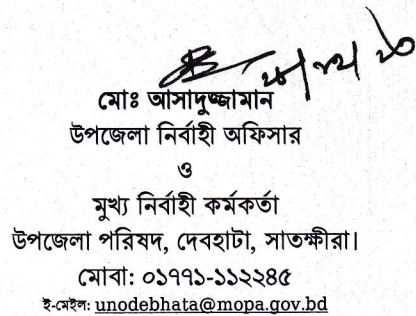 মোঃ আসাদুজ্জামান
উপজেলা নির্বাহী অফিসার
ও
মুখ্য নির্বাহী কর্মকর্তা
উপজেলা পরিষদ, দেবহাটা, সাতক্ষীরা।
মোবা: ০১৭৭১-১১২২৪৫
ই-মেইল: unodebhata@mopa.gov.bd